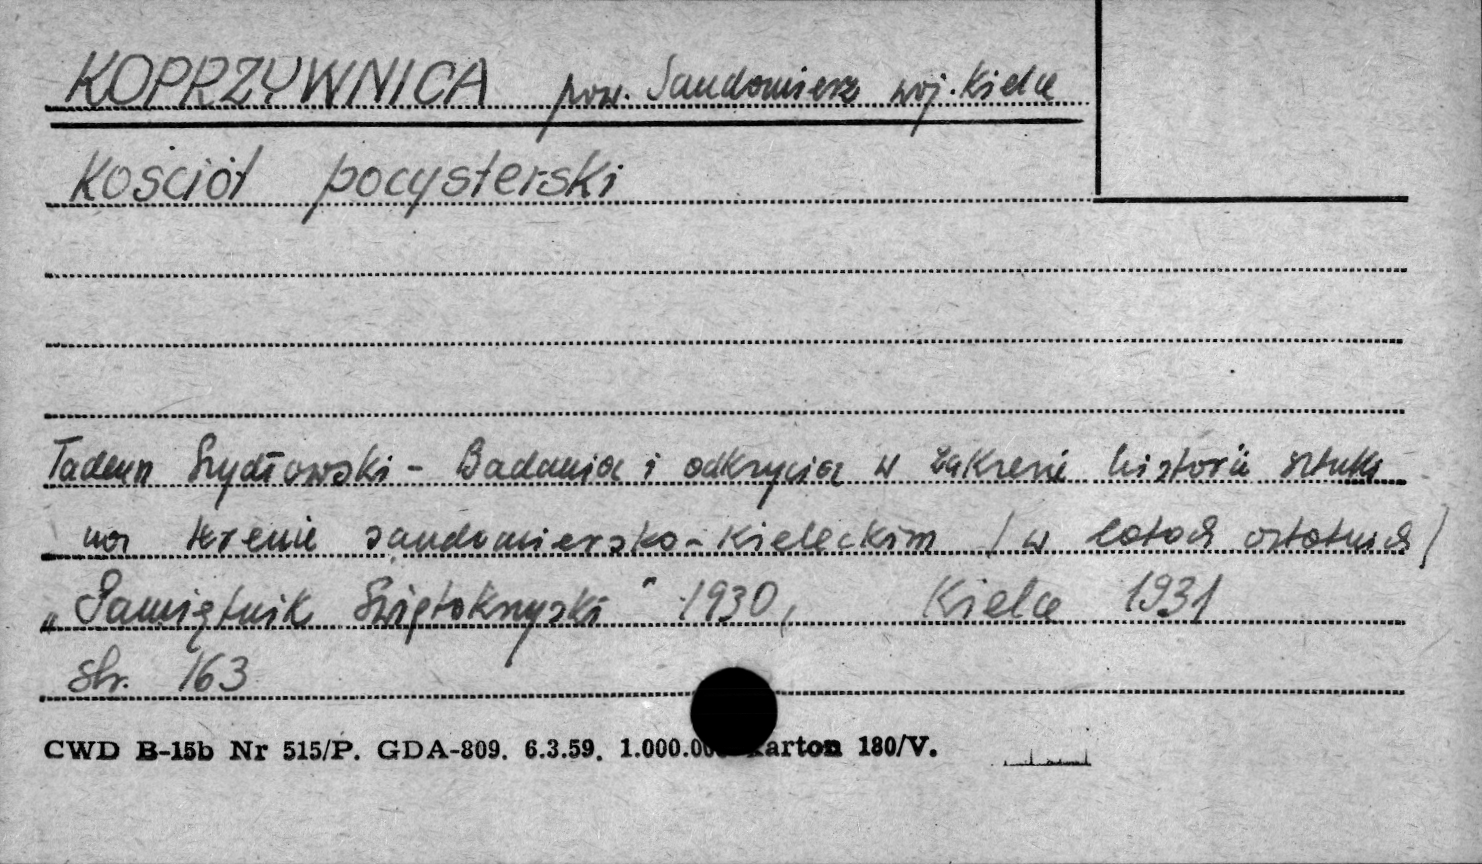 KOPRZYWNICA pow. Sandomierz woj. Kielce
Kościół pocysterski
Tadeusz Szydłowski - Badania i odkrycia w zakresie historii sztuki
na terenie sandomiersko-kieleckim /w latach ostatnich/
„Pamiętnik Świętokrzyski" 1930, Kielce 1931
str. 163
CWD B-15b Nr 515/P. GDA-809. 6.3.59. 1.000.00 karton 180/V.